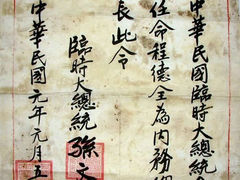 中華民國臨時大總統
任命程德全為內務總
長此令
臨時大總統 孫文
中華民國元年元月五